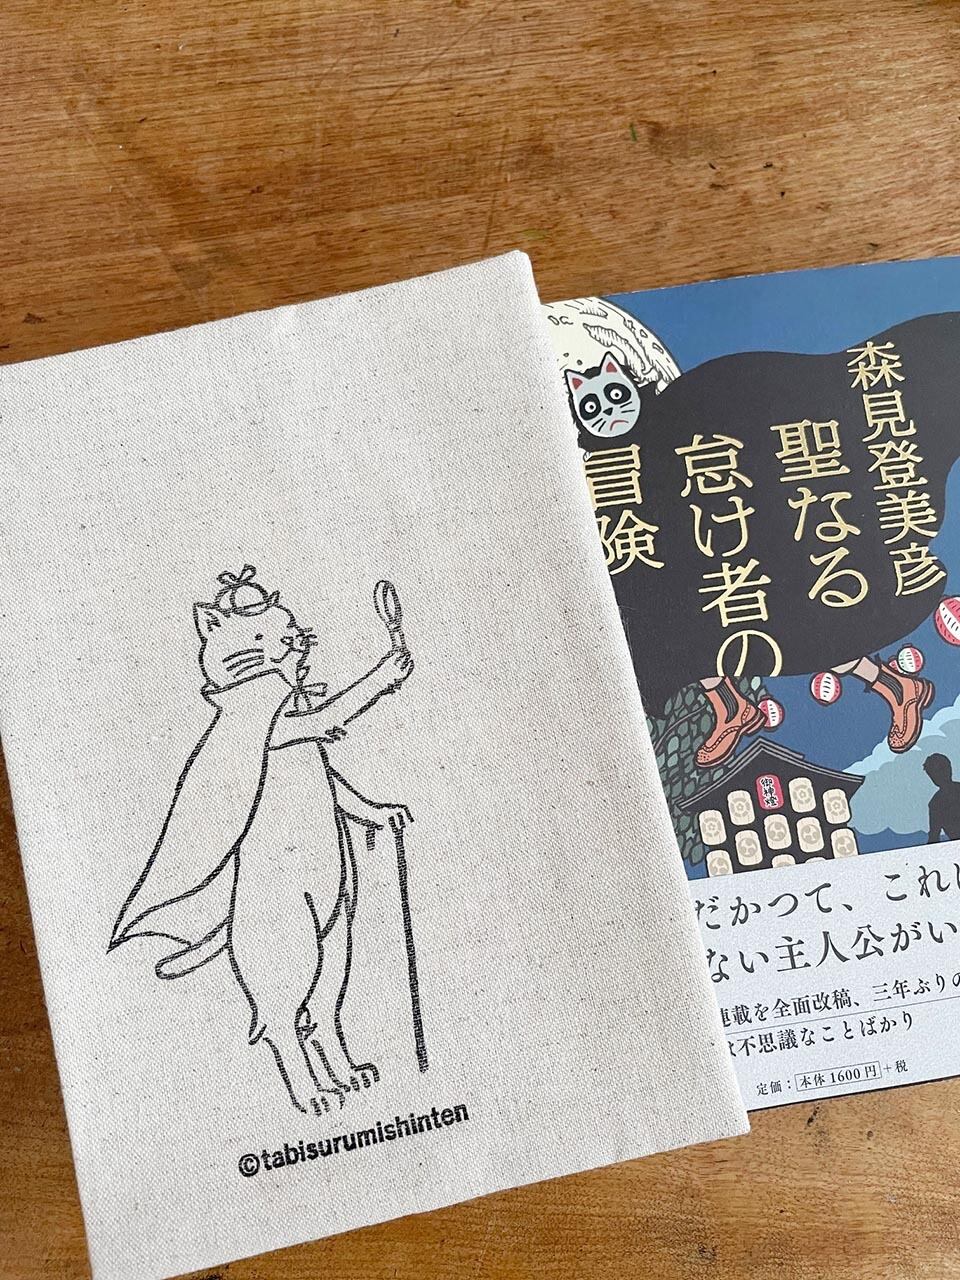 ©tabisurumishinten
森見登美彦
聖なる
怠け者の
冒険
御神燈
だかつて、これ
ない主人公がい
連載を全面改稿、三年ぶりの
は不思議なことばかり
定価：本体1600円+税